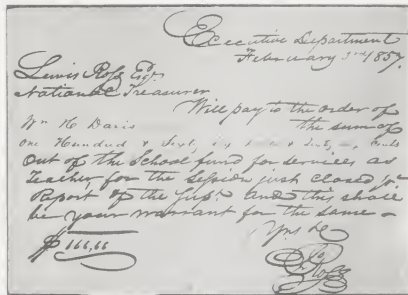 Executive Department
February 3rd 1857.
Lewis Ross Esqr.
National Treasurer
Will pay to the order of
Wm H Davis the sum of
One Hundred & Sixty six & Sixty cents
Out of the School fund for services as
Teacher, for the Session just closed pr
Report of the Supt. and this shall
be your warrant for the same
Yrs &c
$166,66
Jno Ross